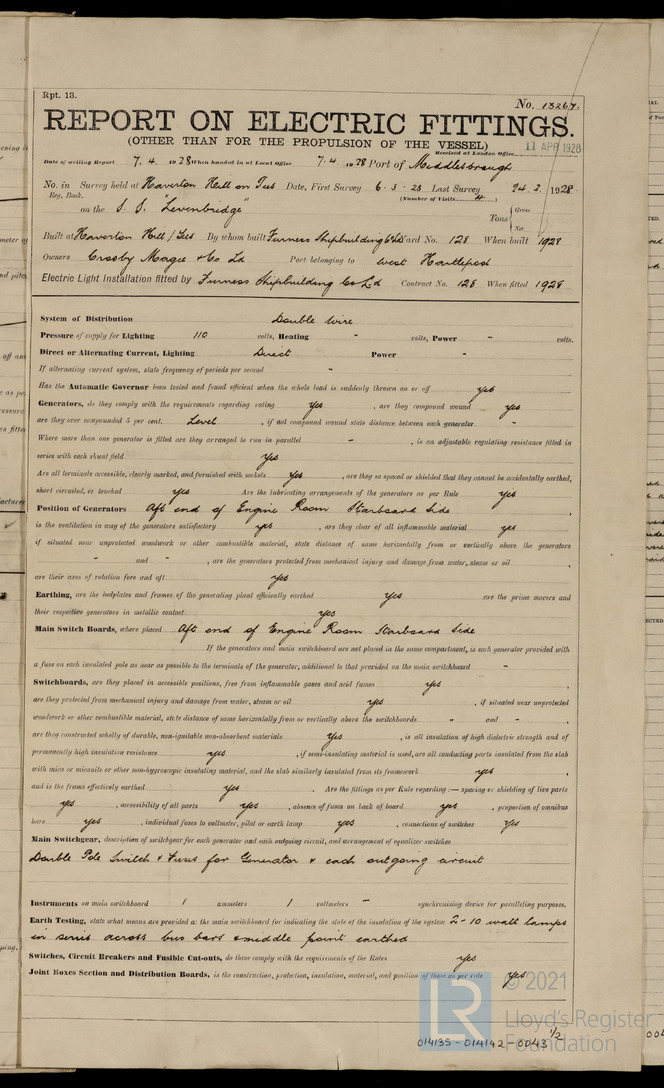 Rpt. 13.
No. 13267.
REPORT ON ELECTRIC FITTINGS.
(OTHER THAN FOR THE PROPULSION OF THE VESSEL)
Received at London Office 11 APR 1928
Date of writing Report 7.4.1928 When handed in at Local Office 7.4.1928 Port of Middlesbrough
No. in Survey held at Haverton Hill on Tees Date, First Survey 6.3.28 Last Survey 24.3.1928
Reg. Book. (Number of Visits 4)
on the S.S. "Levenbridge" Tons { Gross Net
Built at Haverton Hill / Tees By whom built Furness Shipbuilding Co Ld Yard No. 128 When built 1928
Owners Crosby Magee & Co Ld Port belonging to West Hartlepool
Electric Light Installation fitted by Furness Shipbuilding Co Ld Contract No. 128 When fitted 1928
System of Distribution Double Wire
Pressure of supply for Lighting 110 volts, Heating - volts, Power - volts.
Direct or Alternating Current, Lighting Direct Power -
If alternating current system, state frequency of periods per second -
Has the Automatic Governor been tested and found efficient when the whole load is suddenly thrown on or off yes
Generators, do they comply with the requirements regarding rating yes , are they compound wound yes
are they over compounded 5 per cent. Level , if not compound wound state distance between each generator -
Where more than one generator is fitted are they arranged to run in parallel - , is an adjustable regulating resistance fitted in
series with each shunt field yes
Are all terminals accessible, clearly marked, and furnished with sockets yes , are they so spaced or shielded that they cannot be accidentally earthed,
short circuited, or touched yes Are the lubricating arrangements of the generators as per Rule yes
Position of Generators Aft end of Engine Room Starboard Side
is the ventilation in way of the generators satisfactory yes , are they clear of all inflammable material yes
if situated near unprotected woodwork or other combustible material, state distance of same horizontally from or vertically above the generators
- and - , are the generators protected from mechanical injury and damage from water, steam or oil
are their axes of rotation fore and aft yes
Earthing, are the bedplates and frames of the generating plant efficiently earthed yes are the prime movers and
their respective generators in metallic contact yes
Main Switch Boards, where placed Aft end of Engine Room Starboard Side
If the generators and main switchboard are not placed in the same compartment, is each generator provided with
a fuse on each insulated pole as near as possible to the terminals of the generator, additional to that provided on the main switchboard -
Switchboards, are they placed in accessible positions, free from inflammable gases and acid fumes yes ,
are they protected from mechanical injury and damage from water, steam or oil yes , if situated near unprotected
woodwork or other combustible material, state distance of same horizontally from or vertically above the switchboards - and - ,
are they constructed wholly of durable, non-ignitable non-absorbent materials yes , is all insulation of high dielectric strength and of
permanently high insulation resistance yes , if semi-insulating material is used, are all conducting parts insulated from the slab
with mica or micanite or other non-hygroscopic insulating material, and the slab similarly insulated from its framework yes ,
and is the frame effectively earthed yes . Are the fittings as per Rule regarding :— spacing or shielding of live parts
yes , accessibility of all parts yes , absence of fuses on back of board yes , proportion of omnibus
bars yes , individual fuses to voltmeter, pilot or earth lamp yes , connections of switches yes
Main Switchgear, description of switchgear for each generator and each outgoing circuit, and arrangement of equalizer switches
Double Pole Switch & Fuses for Generator & each outgoing circuit
Instruments on main switchboard 1 ammeters 1 voltmeters - synchronising device for paralleling purposes.
Earth Testing, state what means are provided at the main switchboard for indicating the state of the insulation of the system 2-10 watt lamps
in series across bus bars & middle point earthed
Switches, Circuit Breakers and Fusible Cut-outs, do these comply with the requirements of the Rules yes
Joint Boxes Section and Distribution Boards, is the construction, protection, insulation, material, and position of these as per rule yes
© 2021
LR
Lloyd's Register
Foundation
014135 - 014142 - 0043 1/2